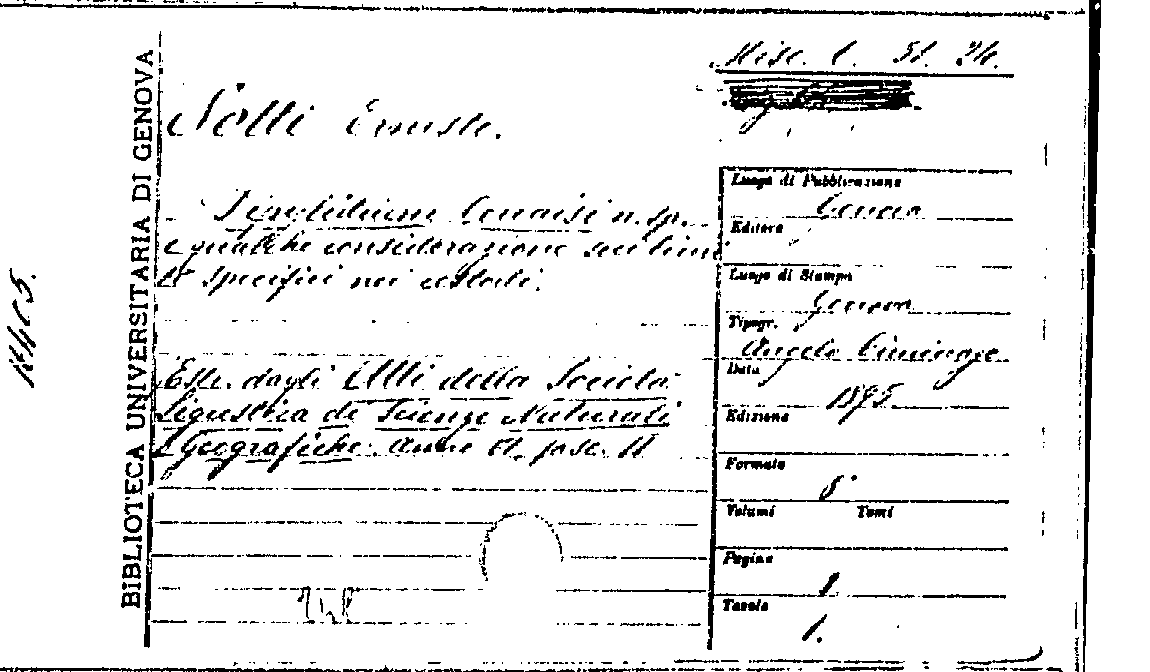 BIBLIOTECA UNIVERSITARIA DI GENOVA
Misc. C. 51. 24.
Setti Ernesto.
Dipylidium Gervaisi n. sp.
e qualche considerazione sui limi
ti specifici nei cestodi.
Estr. dagli Atti della Società
Ligustica di Scienze Naturali
e Geografiche. Anno VI, fasc. II
Luogo di Pubblicazione
Genova
Editore
Luogo di Stampa
Genova
Tipogr.
Angelo Ciminago
Data
1895
Edizione
Formato
8°
Volumi Tomi
Pagine
Tavole
1.